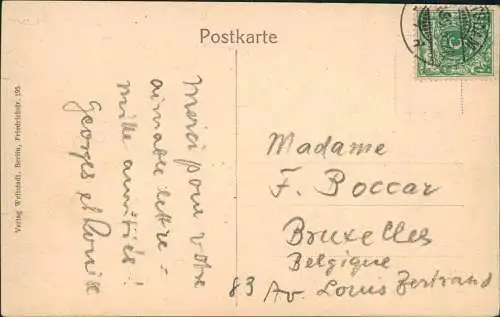 Postkarte
Merci pour votre
aimable lettre -
mille amitiés!
Georges et Louise
Madame
F. Boccar
Bruxelles
Belgique
83 Av. Louis Bertrand
Verlag Weltstadt, Berlin, Friedrichstr. 195.